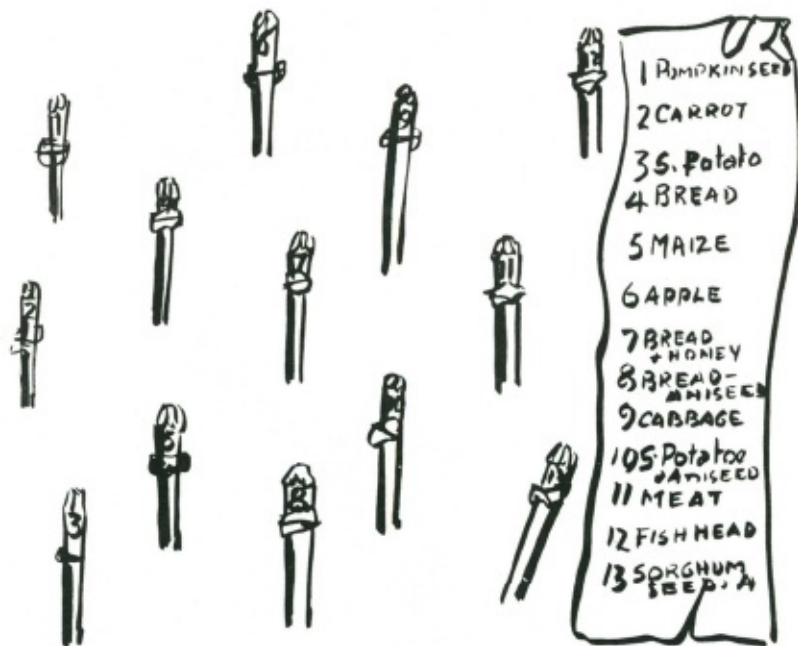 1 PUMPKIN SEED
2 CARROT
3 S. Potato
4 BREAD
5 MAIZE
6 APPLE
7 BREAD
+ HONEY
8 BREAD-
ANISEED
9 CABBAGE
10 S. Potatoe
+ ANISEED
11 MEAT
12 FISH HEAD
13 SORGHUM
SEED
1
2
3
6
7
8
9
11